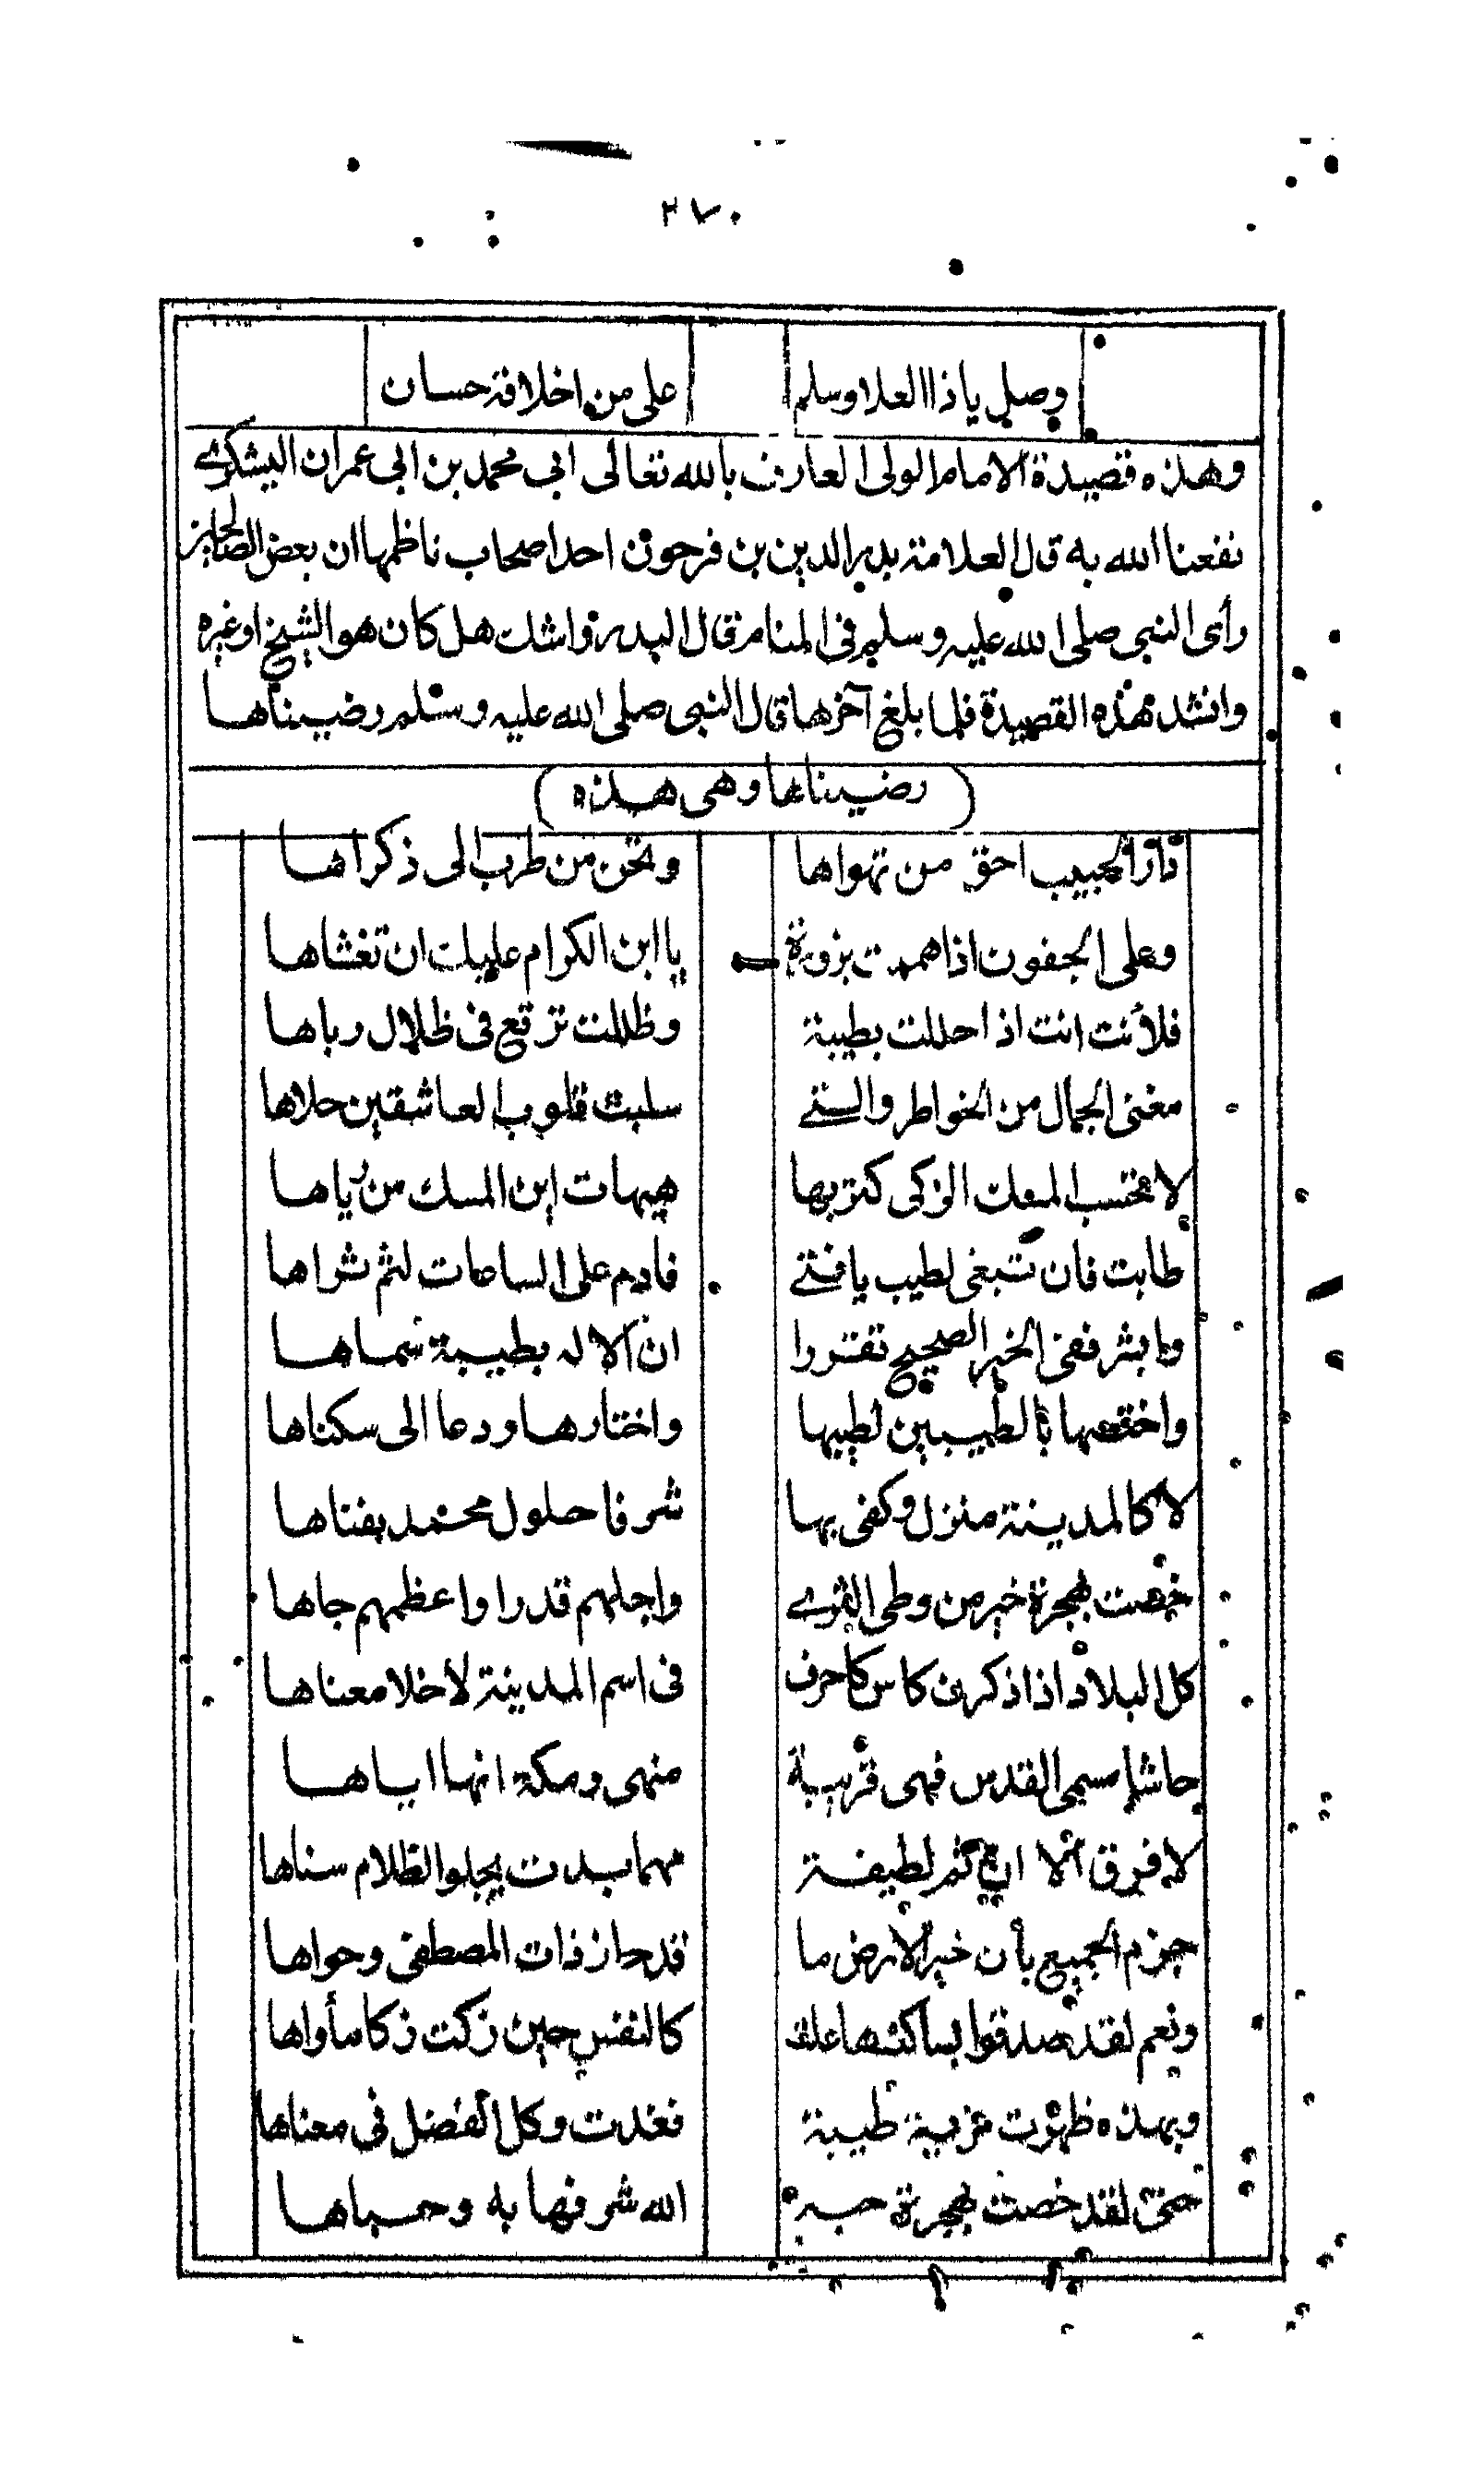 ٢٧٠
وصلي يا ذا العلا وسلم على من اخلاقه حسان
وهذه قصيدة الامام الولي العارف بالله تعالى ابي محمد بن ابي عمران اليشكري
نفعنا الله به قال العلامة بدر الدين بن فرحون احد اصحاب ناظمها ان بعض الصالحين
رأى النبي صلى الله عليه وسلم في المنام قال البدر واشك هل كان هو الشيخ او غيره
وانشد هذه القصيدة فلما بلغ آخرها قال النبي صلى الله عليه وسلم رضيناها
(رضيناها وهي هذه)
دار الحبيب احق من تهواها وتحن من طرب الى ذكراها
وعلى الجفون اذا هممت بزورة يا ابن الكرام عليك ان تغشاها
فلأنت انت اذا حللت بطيبة وظللت ترتع في ظلال رباها
مغنى الجمال من الخواطر والتي سلبت قلوب العاشقين حلاها
لا تحتسب المسك الزكي كتربها هيهات اين المسك من رياها
طابت فان تبغي لطيب يا فتى فادم على الساعات لثم ثراها
وابشر ففي الخبر الصحيح تقررا ان الاله بطيبة سماها
واختصها بالطيبين لطيبها واختارها ودعا الى سكناها
لا كالمدينة منزل وكفى بها شرفا حلول محمد بفناها
خصت بهجرة خير من وطئ الثرى واجلهم قدرا واعظمهم جاها
كل البلاد اذا ذكرن كاحرف في اسم المدينة لا خلا معناها
حاشا مسمى القدس فهي قريبة منها ومكة انها اياها
لا فرق الا ان ثم لطيفة مهما بدت يجلو الظلام سناها
جزم الجميع بأن خير الارض ما قد حاز ذات المصطفى وحواها
ونعم لقد صدقوا بساكنها علت كالنفس حين زكت زكا مأواها
وبهذه ظهرت مزية طيبة فغدت وكل الفضل في معناها
حتى لقد خصت بهجرة حبه الله شرفها به وحباها